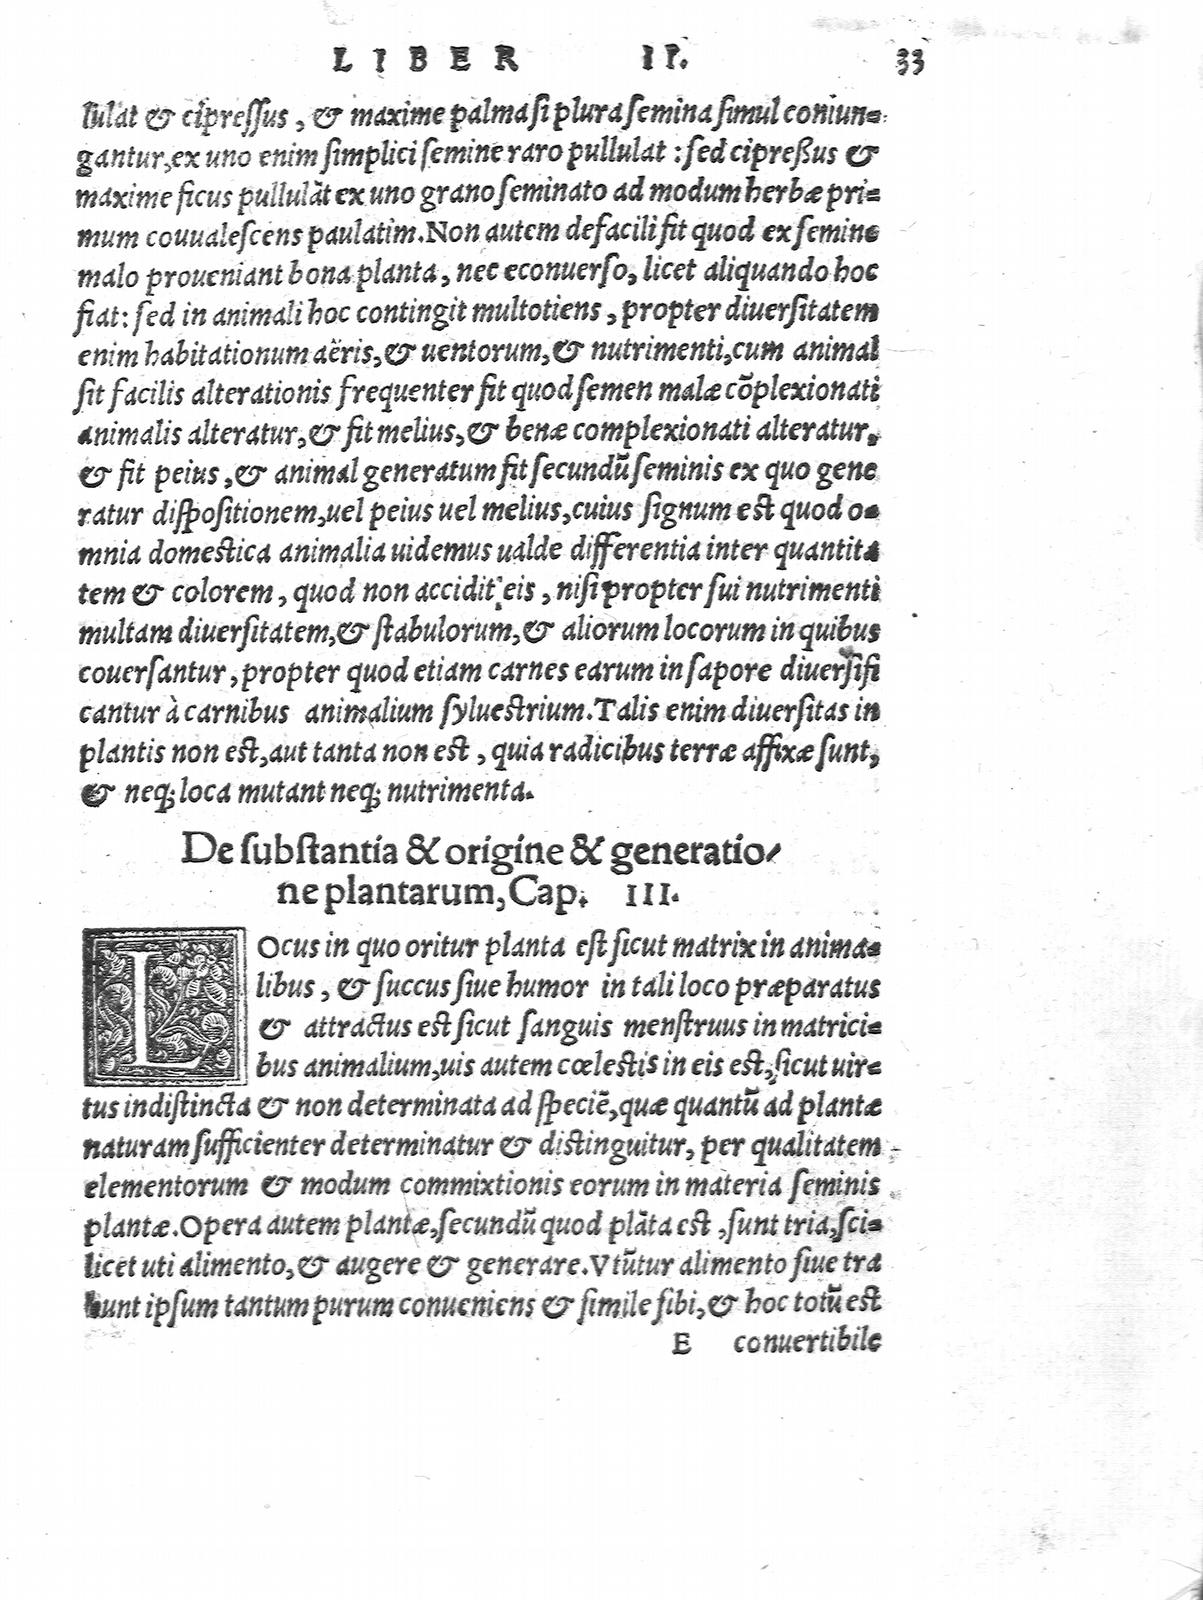 LIBER II. 33
lulat & cipressus, & maxime palma si plura semina simul coniun=
gantur, ex uno enim simplici semine raro pullulat : sed cipreßus &
maxime ficus pullulāt ex uno grano seminato ad modum herbæ pri=
mum couualescens paulatim. Non autem defacili fit quod ex semine
malo proueniant bona planta, nec econuerso, licet aliquando hoc
fiat: sed in animali hoc contingit multotiens, propter diuersitatem
enim habitationum aëris, & uentorum, & nutrimenti, cum animal
sit facilis alterationis frequenter fit quod semen malæ cōplexionati
animalis alteratur, & fit melius, & benæ complexionati alteratur,
& fit peius, & animal generatum fit secundū seminis ex quo gene
ratur dispositionem, uel peius uel melius, cuius signum est quod o=
mnia domestica animalia uidemus ualde differentia inter quantita
tem & colorem, quod non accidit eis, nisi propter sui nutrimenti
multam diuersitatem, & stabulorum, & aliorum locorum in quibus
couersantur, propter quod etiam carnes earum in sapore diuersifi
cantur à carnibus animalium syluestrium. Talis enim diuersitas in
plantis non est, aut tanta non est, quia radicibus terræ affixæ sunt,
& neq; loca mutant neq; nutrimenta.
De substantia & origine & generatio/
ne plantarum, Cap. III.
LOcus in quo oritur planta est sicut matrix in anima=
libus, & succus siue humor in tali loco præparatus
& attractus est sicut sanguis menstruus in matrici=
bus animalium, uis autem cœlestis in eis est, sicut uir=
tus indistincta & non determinata ad speciē, quæ quantū ad plantæ
naturam sufficienter determinatur & distinguitur, per qualitatem
elementorum & modum commixtionis eorum in materia seminis
plantæ. Opera autem plantæ, secundū quod plāta est, sunt tria, sci=
licet uti alimento, & augere & generare. Vtūtur alimento siue tra
hunt ipsum tantum purum conueniens & simile sibi, & hoc totū est
E conuertibile